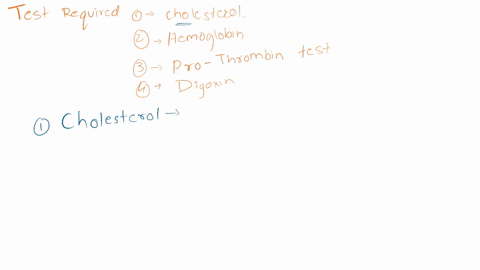 Test Required ① → cholesterol.
② → Hemoglobin
③ → Pro-Thrombin test
④ → Digoxin
① Cholesterol →